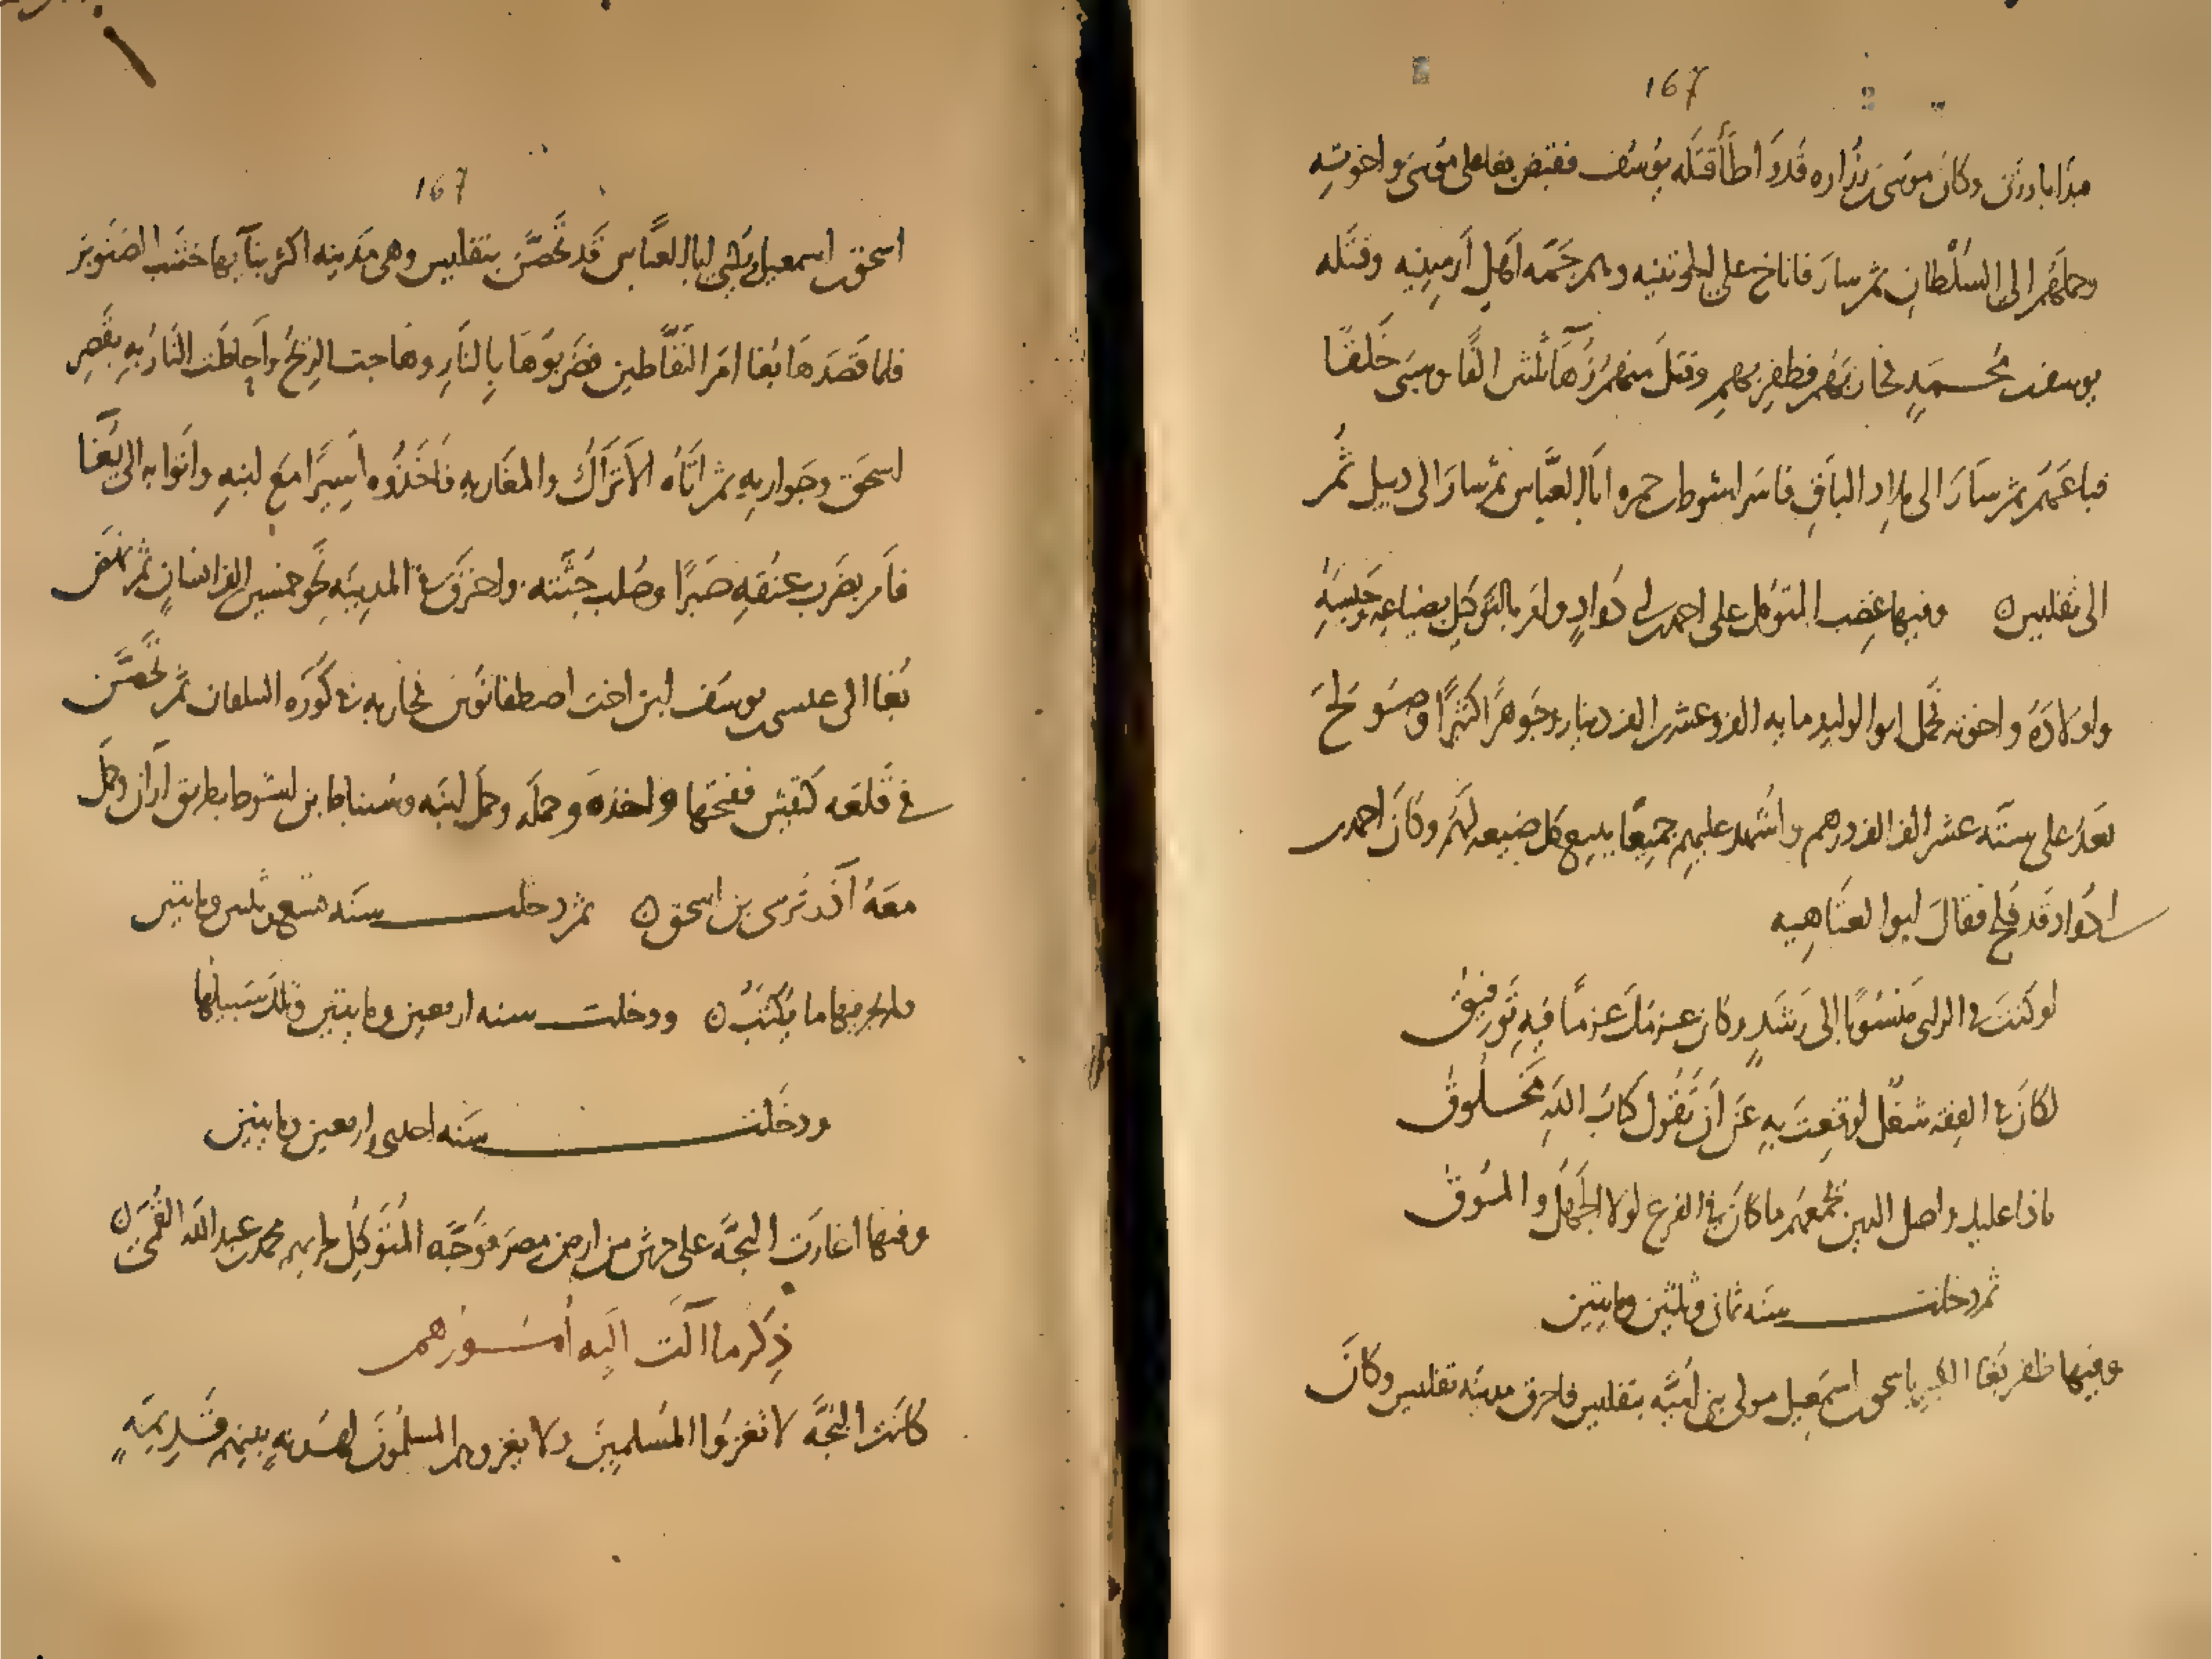 167
مبدا بارزن وكان موسى بن زراره قد واطأ قتله يوسف فقبض بغا على موسى واخوته
وحملهم الى السلطان ثم سار فاناخ على الخويثيه وهم جمه اهل ارمينيه وقتله
يوسف بن محمد فحاربهم فظفر بهم وقتل منهم زهآ ثلثين الفا وسبى خلقا
فباعهم ثم سار الى بلاد الباق فاسر اشوط بن حمزه ابا العباس ثم سار الى دبيل ثم
الى تفليس ٥ وفيها غضب المتوكل على احمد بن ابي دواد وامر بالتوكيل بضياعه وحبسه
واولاده واخوته فحمل ابو الوليد مايه الف وعشرين الف دينار وجوهرا كثيرا وصولح
بعد على سته عشر الف الف درهم واشهد عليهم جميعا ببيع كل ضيعه لهم وكان احمد بن
ابي دواد قد فلج فقال ابو العتاهيه
لو كنت في الراى منسوبا الى رشد وكان عزمك عزما فيه توفيق
لكان في الفقه شغل لو قنعت به عن ان تقول كتاب الله مخلوق
ماذا عليك واصل الدين يجمعهم ما كان في الفرع لولا الجهل والموق
ثم دخلت سنه ثمان وثلثين ومايتين
وفيها ظفر بغا الكبير باسحق بن اسمعيل مولى بني اميه بتفليس فاحرق مدينه تفليس وكان
167
اسحق بن اسمعيل بن ابي العباس قد تحصن بتفليس وهي مدينه اكثر بنآيها خشب الصنوبر
فلما قصدها بغا امر النفاطين فضربوها بالنار وهاجت الريح واحاطت النار به بقصر
اسحق وجواريه ثم اتاه الاتراك والمغاربه فاخذوه اسيرا مع ابنه واتوا به الى بغا
فامر بضرب عنقه صبرا وصلب جثته واحترق في المدينه نحو خمسين الف انسان ثم نهض
بغا الى عيسى بن يوسف ابن اخت اصطفانوس فحاربه في كوره البيلقان ثم تحصن
في قلعه كثيش ففتحها واخذه وحمله وحمل ابنه وسنباط بن اشوط بطريق اران وحمل
معه آذرنرسى بن اسحق ٥ ثم دخلت سنه تسع وثلثين ومايتين
ولم يجر فيها ما يكتب ٥ ودخلت سنه اربعين ومايتين وتلك سبيلها
ودخلت سنه احدى واربعين ومايتين
وفيها اغارت البجه على حرش من ارض مصر فوجه المتوكل لحربهم محمد بن عبد الله القمى ٥
ذكر ما آلت اليه امورهم
كانت البجه لا تغزوا المسلمين ولا يغزوهم المسلمون لهدنه بينهم قديمه